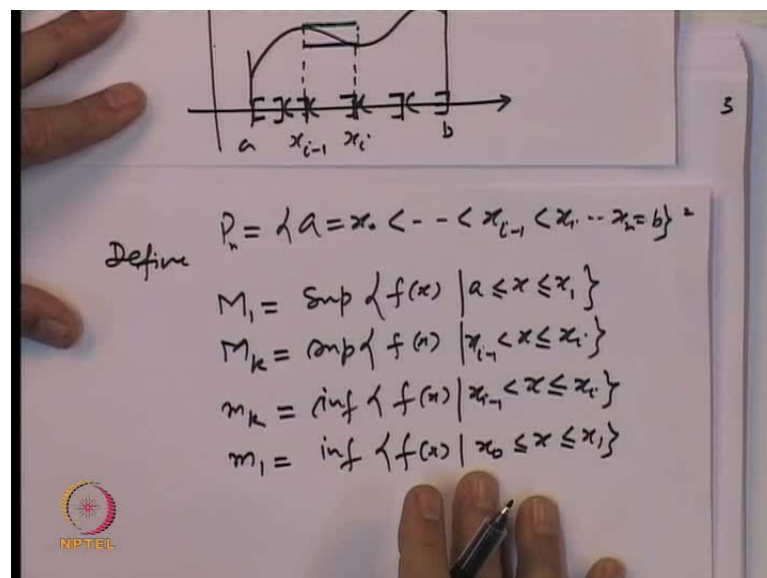 3
a x_{i-1} x_i b
P_n = {a = x_0 < -- < x_{i-1} < x_i -- x_n = b} 2
Define
M_1 = Sup {f(x) | a ≤ x ≤ x_1}
M_k = sup {f(x) | x_{i-1} < x ≤ x_i}
m_k = inf {f(x) | x_{i-1} < x ≤ x_i}
m_1 = inf {f(x) | x_0 ≤ x ≤ x_1}
NPTEL